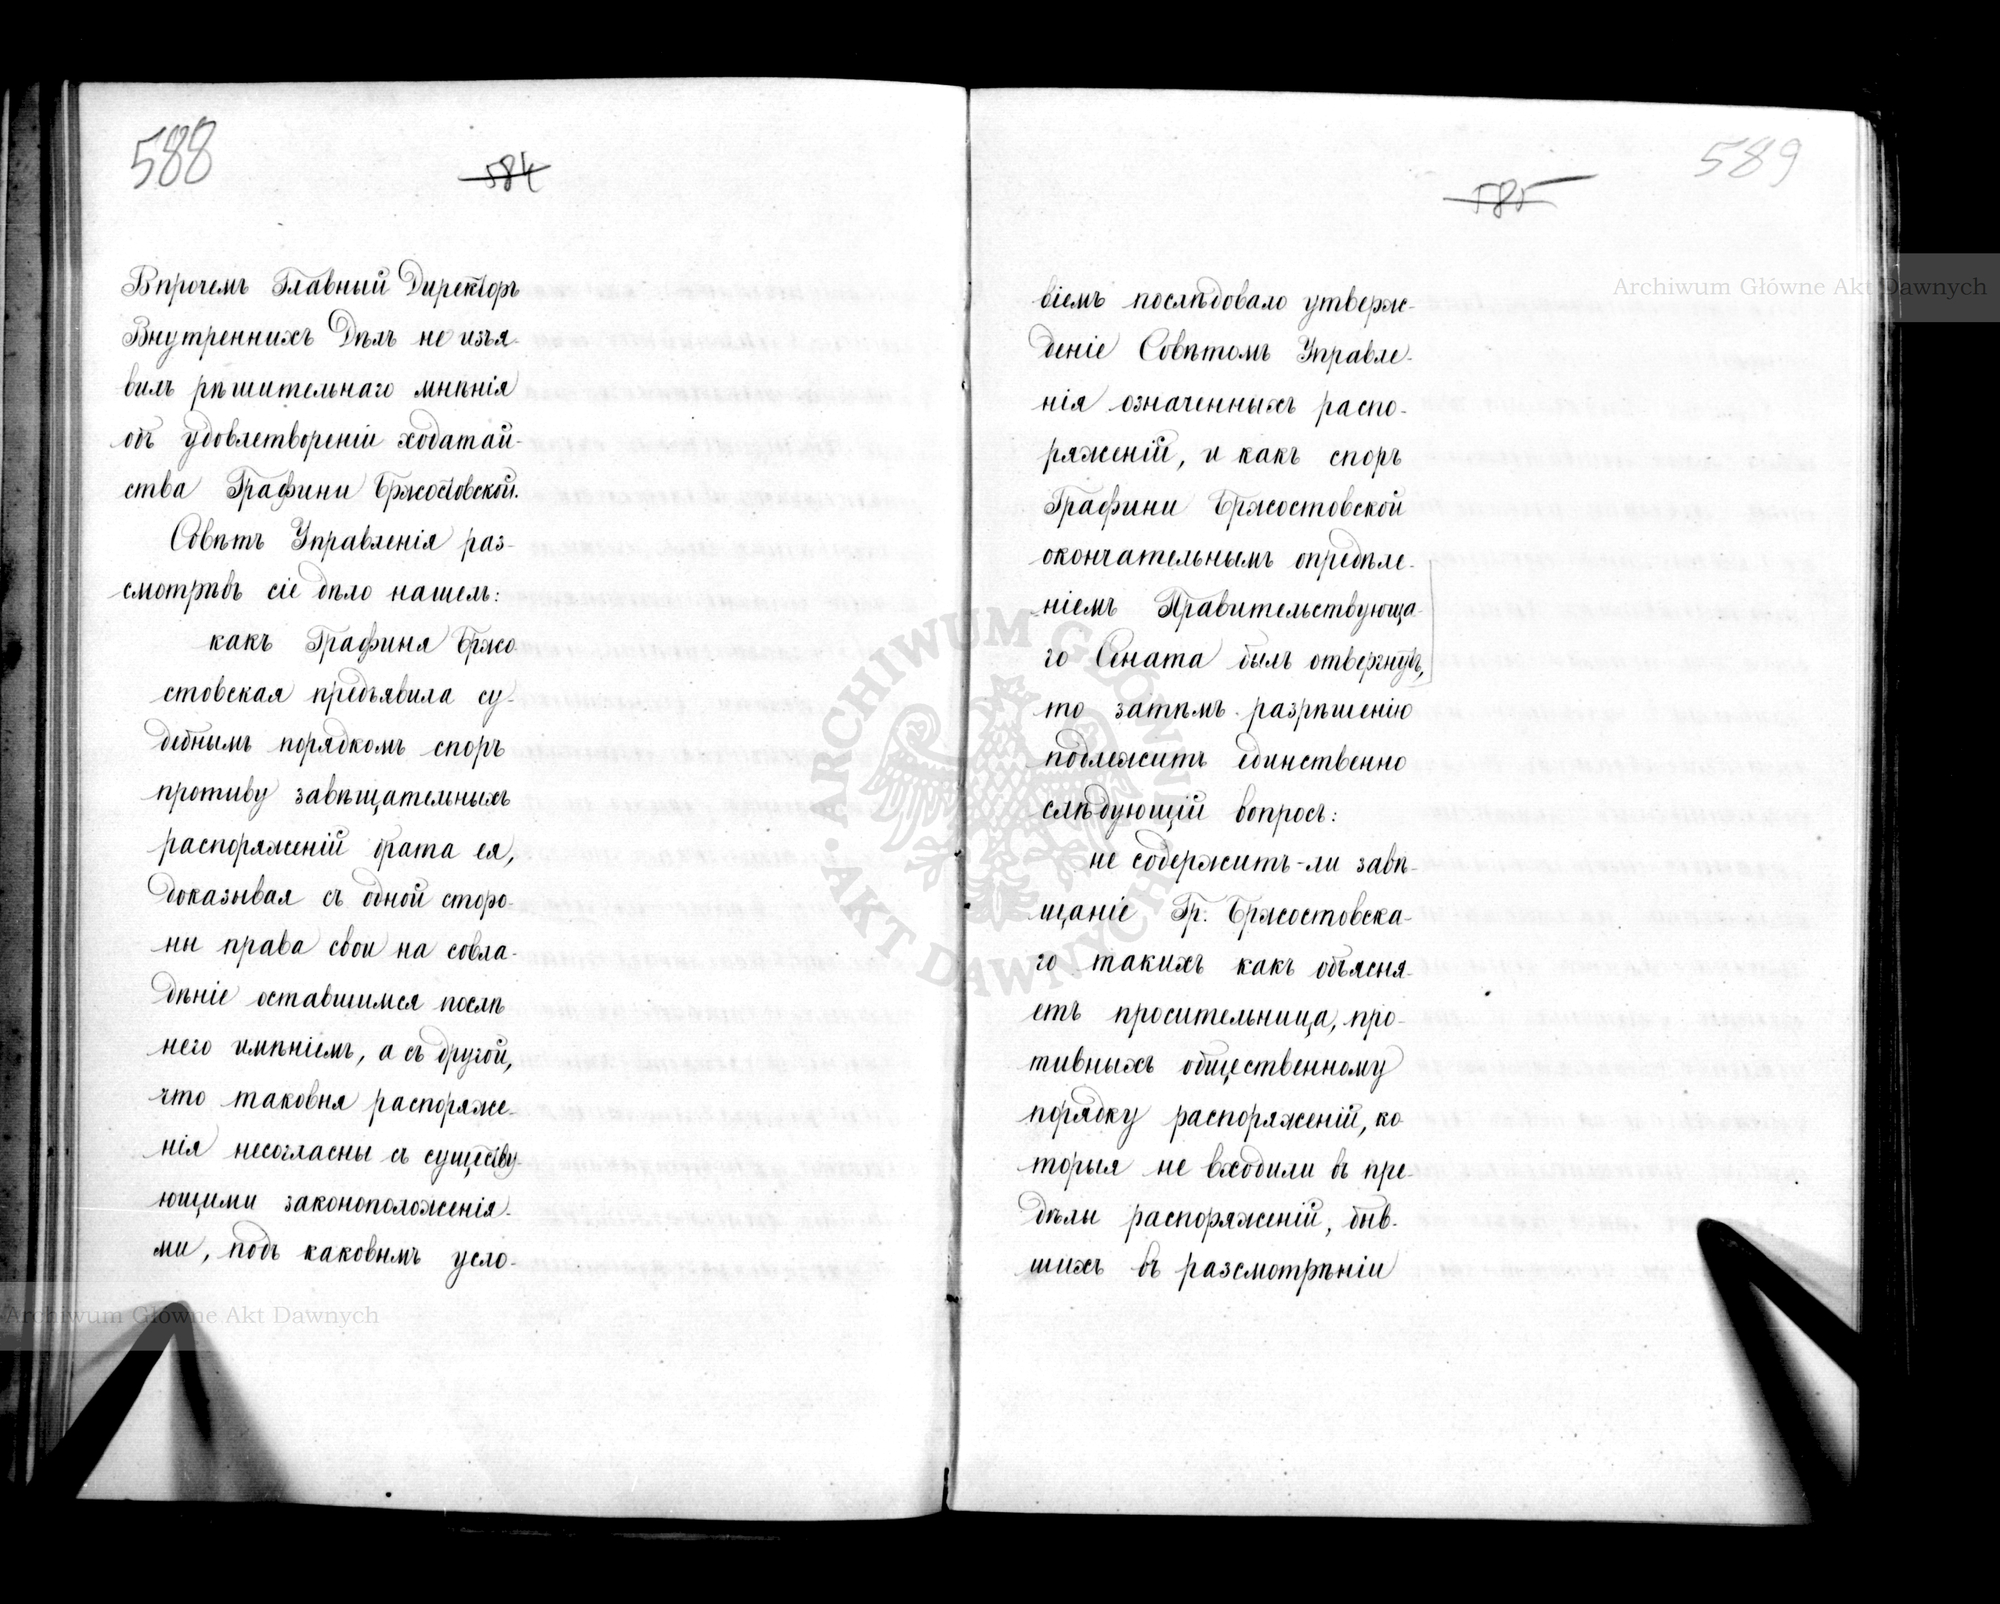 588
584
Впрочемъ Главный Директоръ
Внутреннихъ Дѣлъ не изъя-
вилъ рѣшительнаго мнѣнія
объ удовлетвореніи ходатай-
ства Графини Бржостовской.
Совѣтъ Управленія раз-
смотрѣвъ сіе дѣло нашелъ:
какъ Графиня Бржо
стовская предъявила су-
дебнымъ порядкомъ споръ
противу завѣщательныхъ
распоряженій брата ея,
доказывая съ одной сторо-
ны права свои на совла-
дѣніе оставшимся послѣ
него имѣніемъ, а съ другой,
что таковыя распоряже-
нія несогласны съ существу-
ющими законоположенія-
ми, подъ каковымъ усло-
589
585
віемъ послѣдовало утверж-
деніе Совѣтомъ Управле-
нія означенныхъ распо-
ряженій, и какъ споръ
Графини Бржостовской
окончательнымъ опредѣле-
ніемъ Правительствующа-
го Сената былъ отвергнутъ,
то затѣмъ разрѣшенію
подлежитъ единственно
слѣдующій вопросъ:
не содержитъ-ли завѣ-
щаніе Гр. Бржостовска-
го такихъ какъ объясня-
етъ просительница, про-
тивныхъ общественному
порядку распоряженій, ко
торыя не входили въ пре-
дѣлы распоряженій, быв-
шихъ въ разсмотрѣніи
Archiwum Główne Akt Dawnych
Archiwum Główne Akt Dawnych
ARCHIWUM GŁÓWNE AKT DAWNYCH